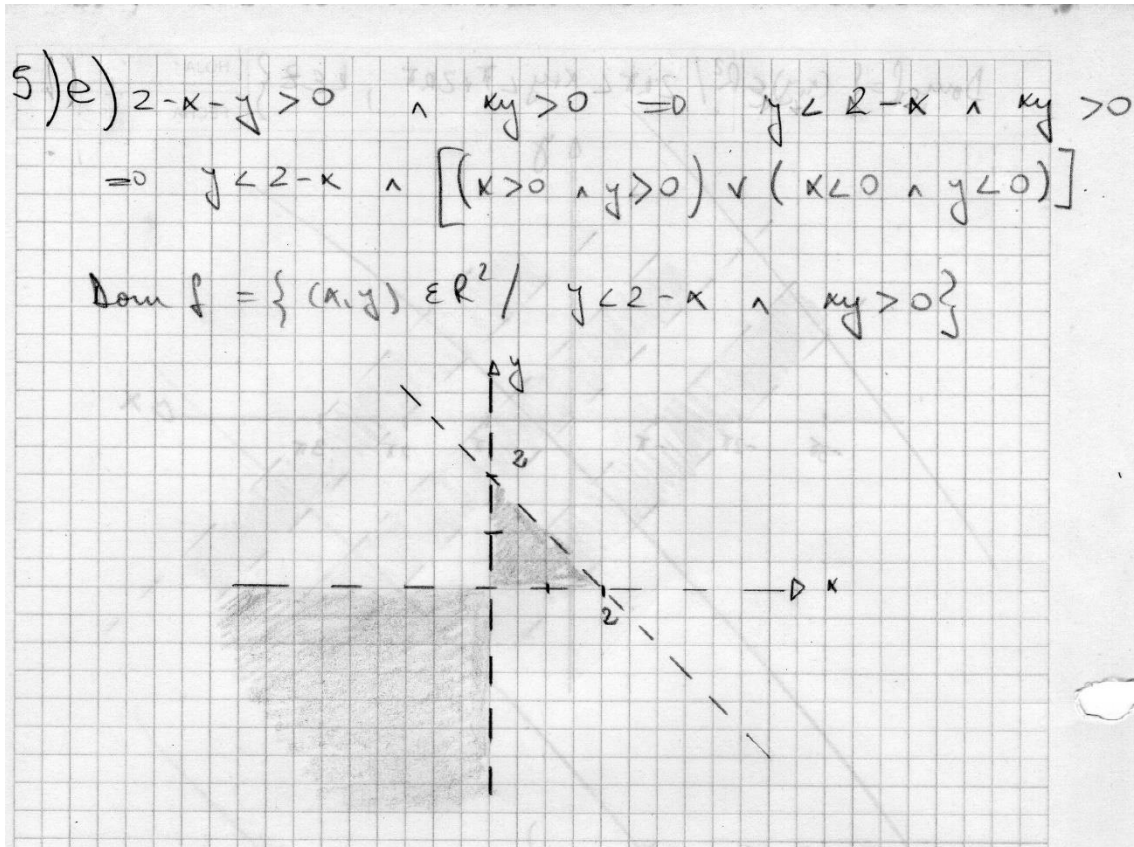 5)e) 2-x-y > 0 ∧ xy > 0 => y < 2-x ∧ xy > 0
=> y < 2-x ∧ [(x>0 ∧ y>0) ∨ (x<0 ∧ y<0)]
Dom f = { (x,y) ε R² / y < 2-x ∧ xy > 0}
y
2
x
2